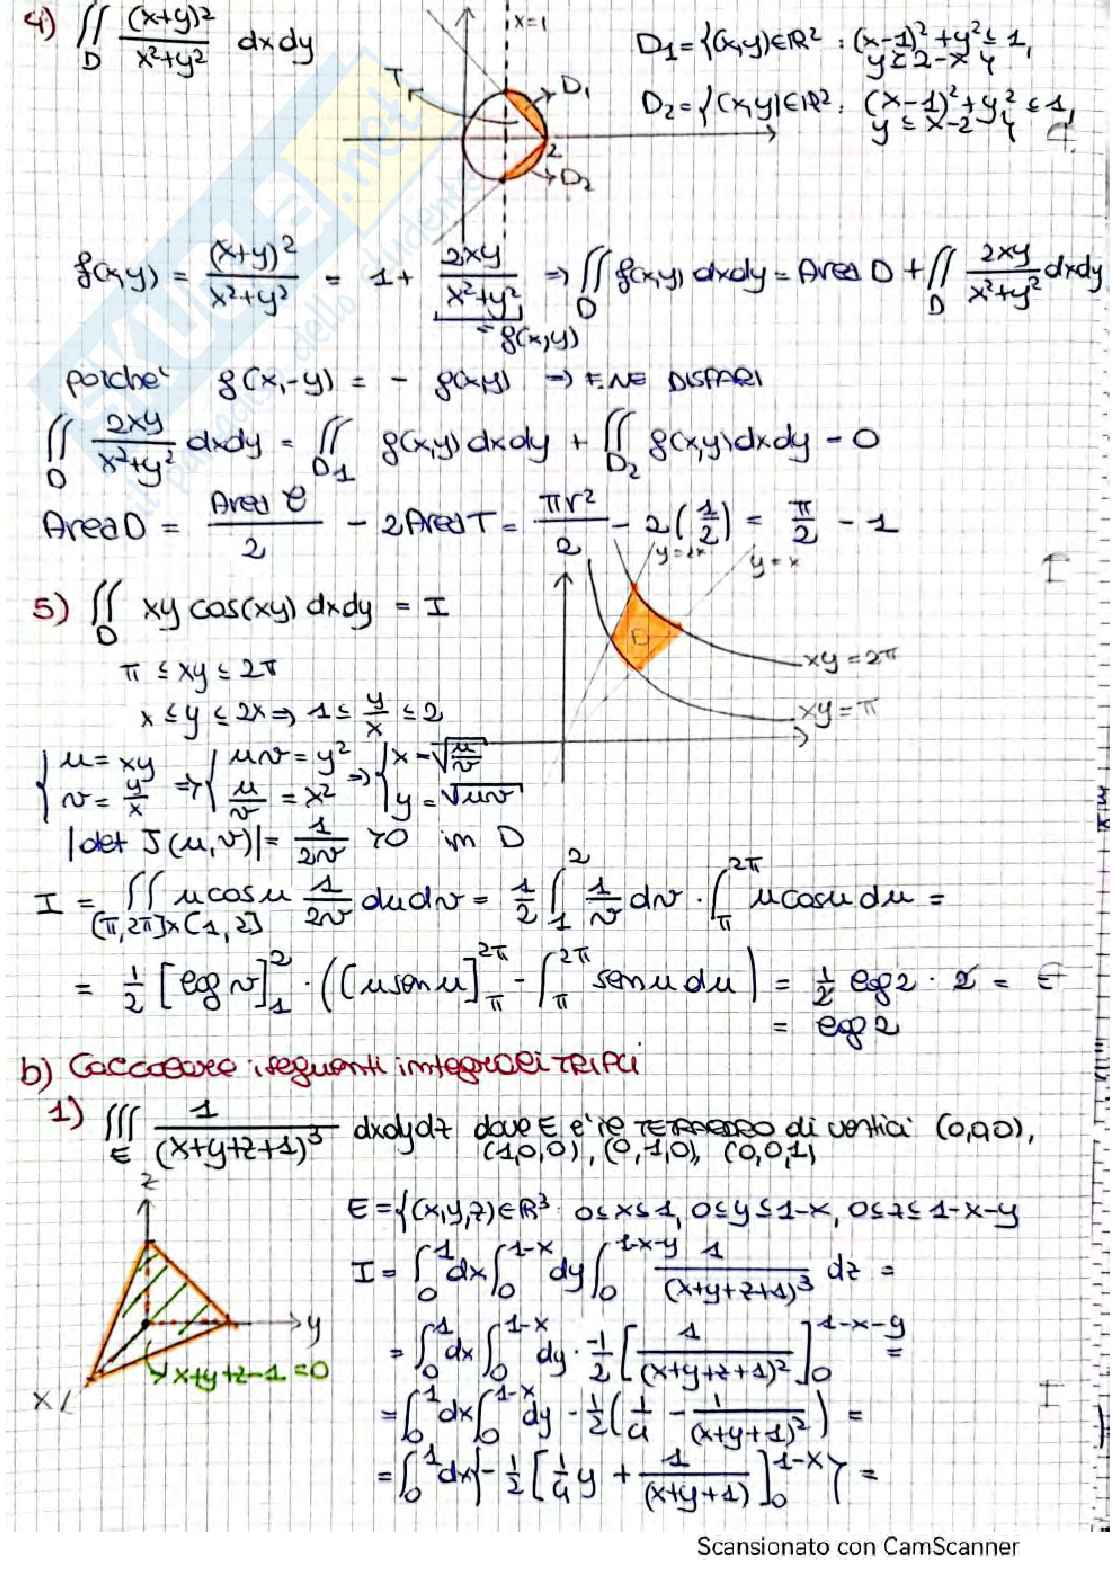 4) ∬_D (x+y)²/(x²+y²) dxdy
x=1
T
D₁
2
D₂
D₁ = {(x,y)∈ℝ² : (x-1)²+y² ≤ 1,
y ≥ 2-x}
D₂ = {(x,y)∈ℝ² : (x-1)²+y² ≤ 1,
y ≤ x-2}
f(x,y) = (x+y)²/(x²+y²) = 1 + 2xy/(x²+y²) ⇒ ∬_D f(x,y) dxdy = Area D + ∬_D 2xy/(x²+y²) dxdy
= g(x,y)
poiché g(x,-y) = - g(x,y) ⇒ FNE DISPARI
∬_D 2xy/(x²+y²) dxdy = ∬_D₁ g(x,y) dxdy + ∬_D₂ g(x,y) dxdy = 0
Area D = Area C/2 - 2 Area T = πr²/2 - 2(1/2) = π/2 - 1
5) ∬_D xy cos(xy) dxdy = I
y=2x
y=x
D
xy=2π
xy=π
π ≤ xy ≤ 2π
x ≤ y ≤ 2x ⇒ 1 ≤ y/x ≤ 2
{u = xy, v = y/x ⇒ {uv = y², u/v = x² ⇒ {x = √(u/v), y = √(uv)
|det J(u,v)| = 1/(2v) >0 in D
I = ∬_[π,2π]×[1,2] u cos u 1/(2v) du dv = 1/2 ∫₁² 1/v dv · ∫_π^2π u cos u du =
= 1/2 [log v]₁² · ([u sen u]_π^2π - ∫_π^2π sen u du) = 1/2 log 2 · 2 =
= log 2
b) Calcolare i seguenti integrali TRIPLI
1) ∭_E 1/(x+y+z+1)³ dxdydz dove E è il TETRAEDRO di vertici (0,0,0),
(1,0,0), (0,1,0), (0,0,1)
z
y
x
x+y+z-1=0
E = {(x,y,z)∈ℝ³ 0≤x≤1, 0≤y≤1-x, 0≤z≤1-x-y
I = ∫₀¹ dx ∫₀^1-x dy ∫₀^1-x-y 1/(x+y+z+1)³ dz =
= ∫₀¹ dx ∫₀^1-x dy · -1/2 [1/(x+y+z+1)²]₀^1-x-y =
= ∫₀¹ dx ∫₀^1-x dy - 1/2 (1/4 - 1/(x+y+1)²) =
= ∫₀¹ dx {- 1/2 [1/4 y + 1/(x+y+1)]₀^1-x} =
Scansionato con CamScanner